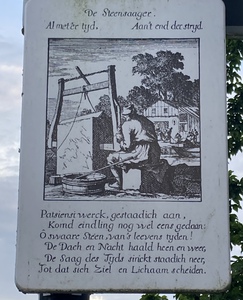 De Steensaager.
Al met de tyd. Aan't end der stryd.
Patiensi werck, gestaadich aan,
Komd eindling nog wel eens gedaan:
O swaare Steen, van's leevens tyden!
De Dach en Nacht haald heen en weer,
De Saag des Tyds strickt staadich neer,
Tot dat sich Ziel en Lichaam scheiden.